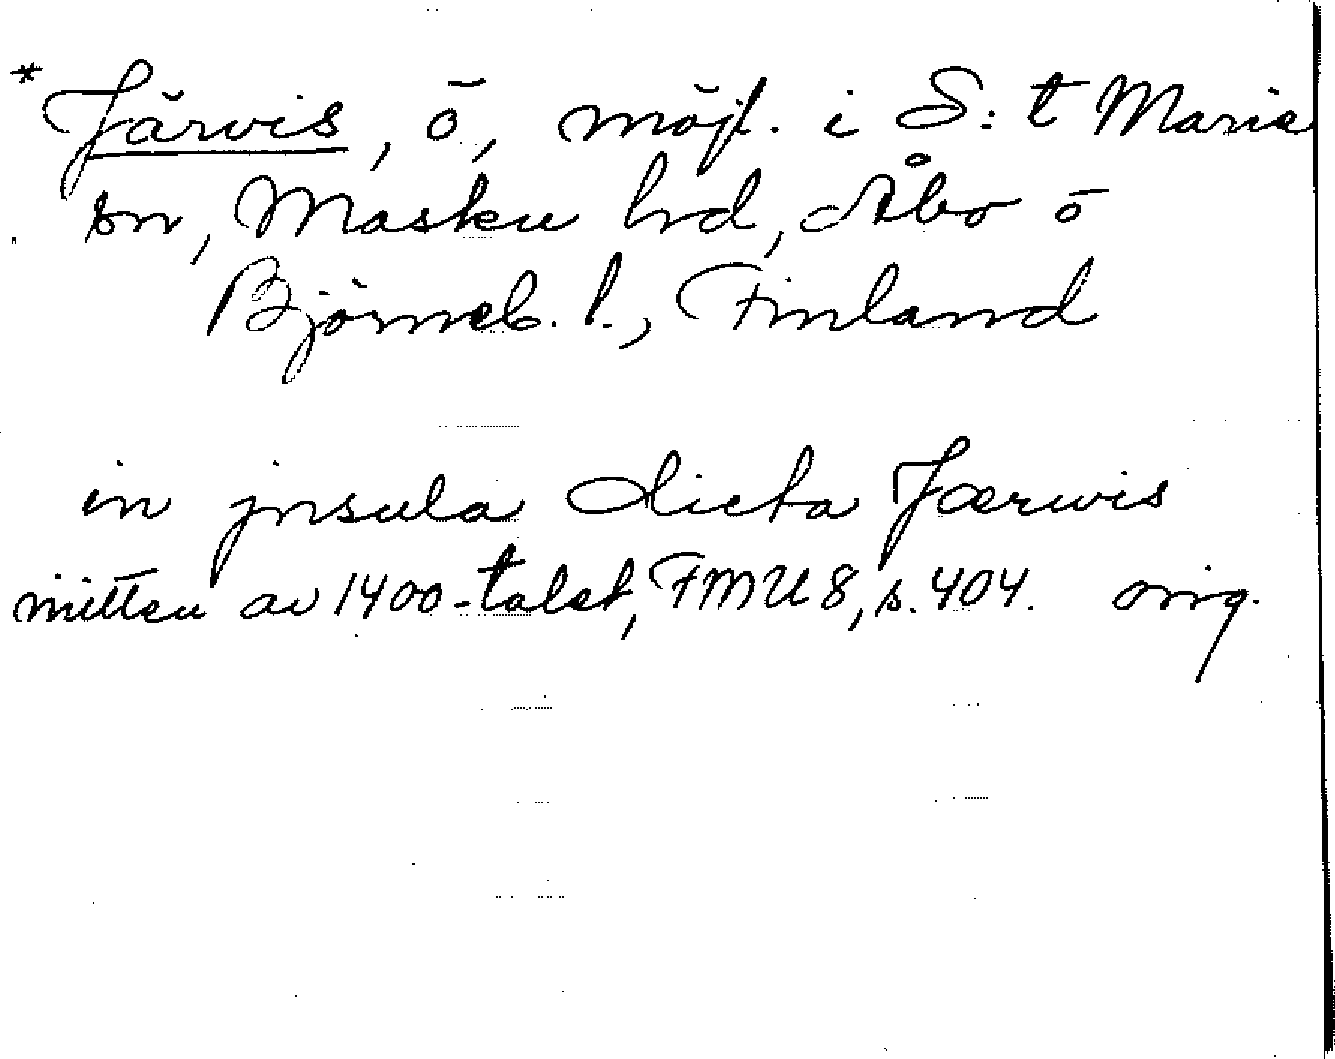 * Järvis, ö, möjl. i S:t Maria
sn, Masku hd, Åbo o
Björneb. l., Finland
in jnsula dicta Jærwis
mitten av 1400-talet, FMU 8, s. 404. orig.